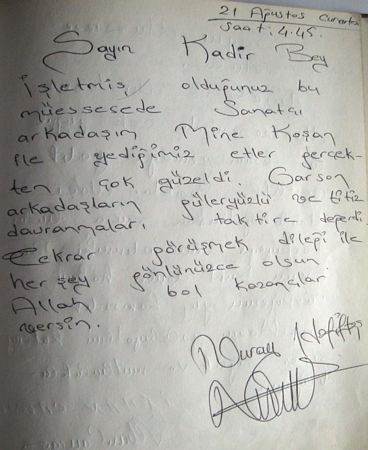 21 Ağustos Cumartesi
Saat: 4.45.
Sayın Kadir Bey
İşletmiş olduğunuz bu
müessesede Sanatcı
arkadaşım Mine Koşan
ile yediğimiz etler gerçek-
ten çok güzeldi. Garson
arkadaşların güleryüzlü ve titiz
davranmaları taktire değerdi.
Tekrar görüşmek dileği ile
her şey gönlünüzce olsun.
Allah bol kazançlar
versin.
Nuray Hafiftaş